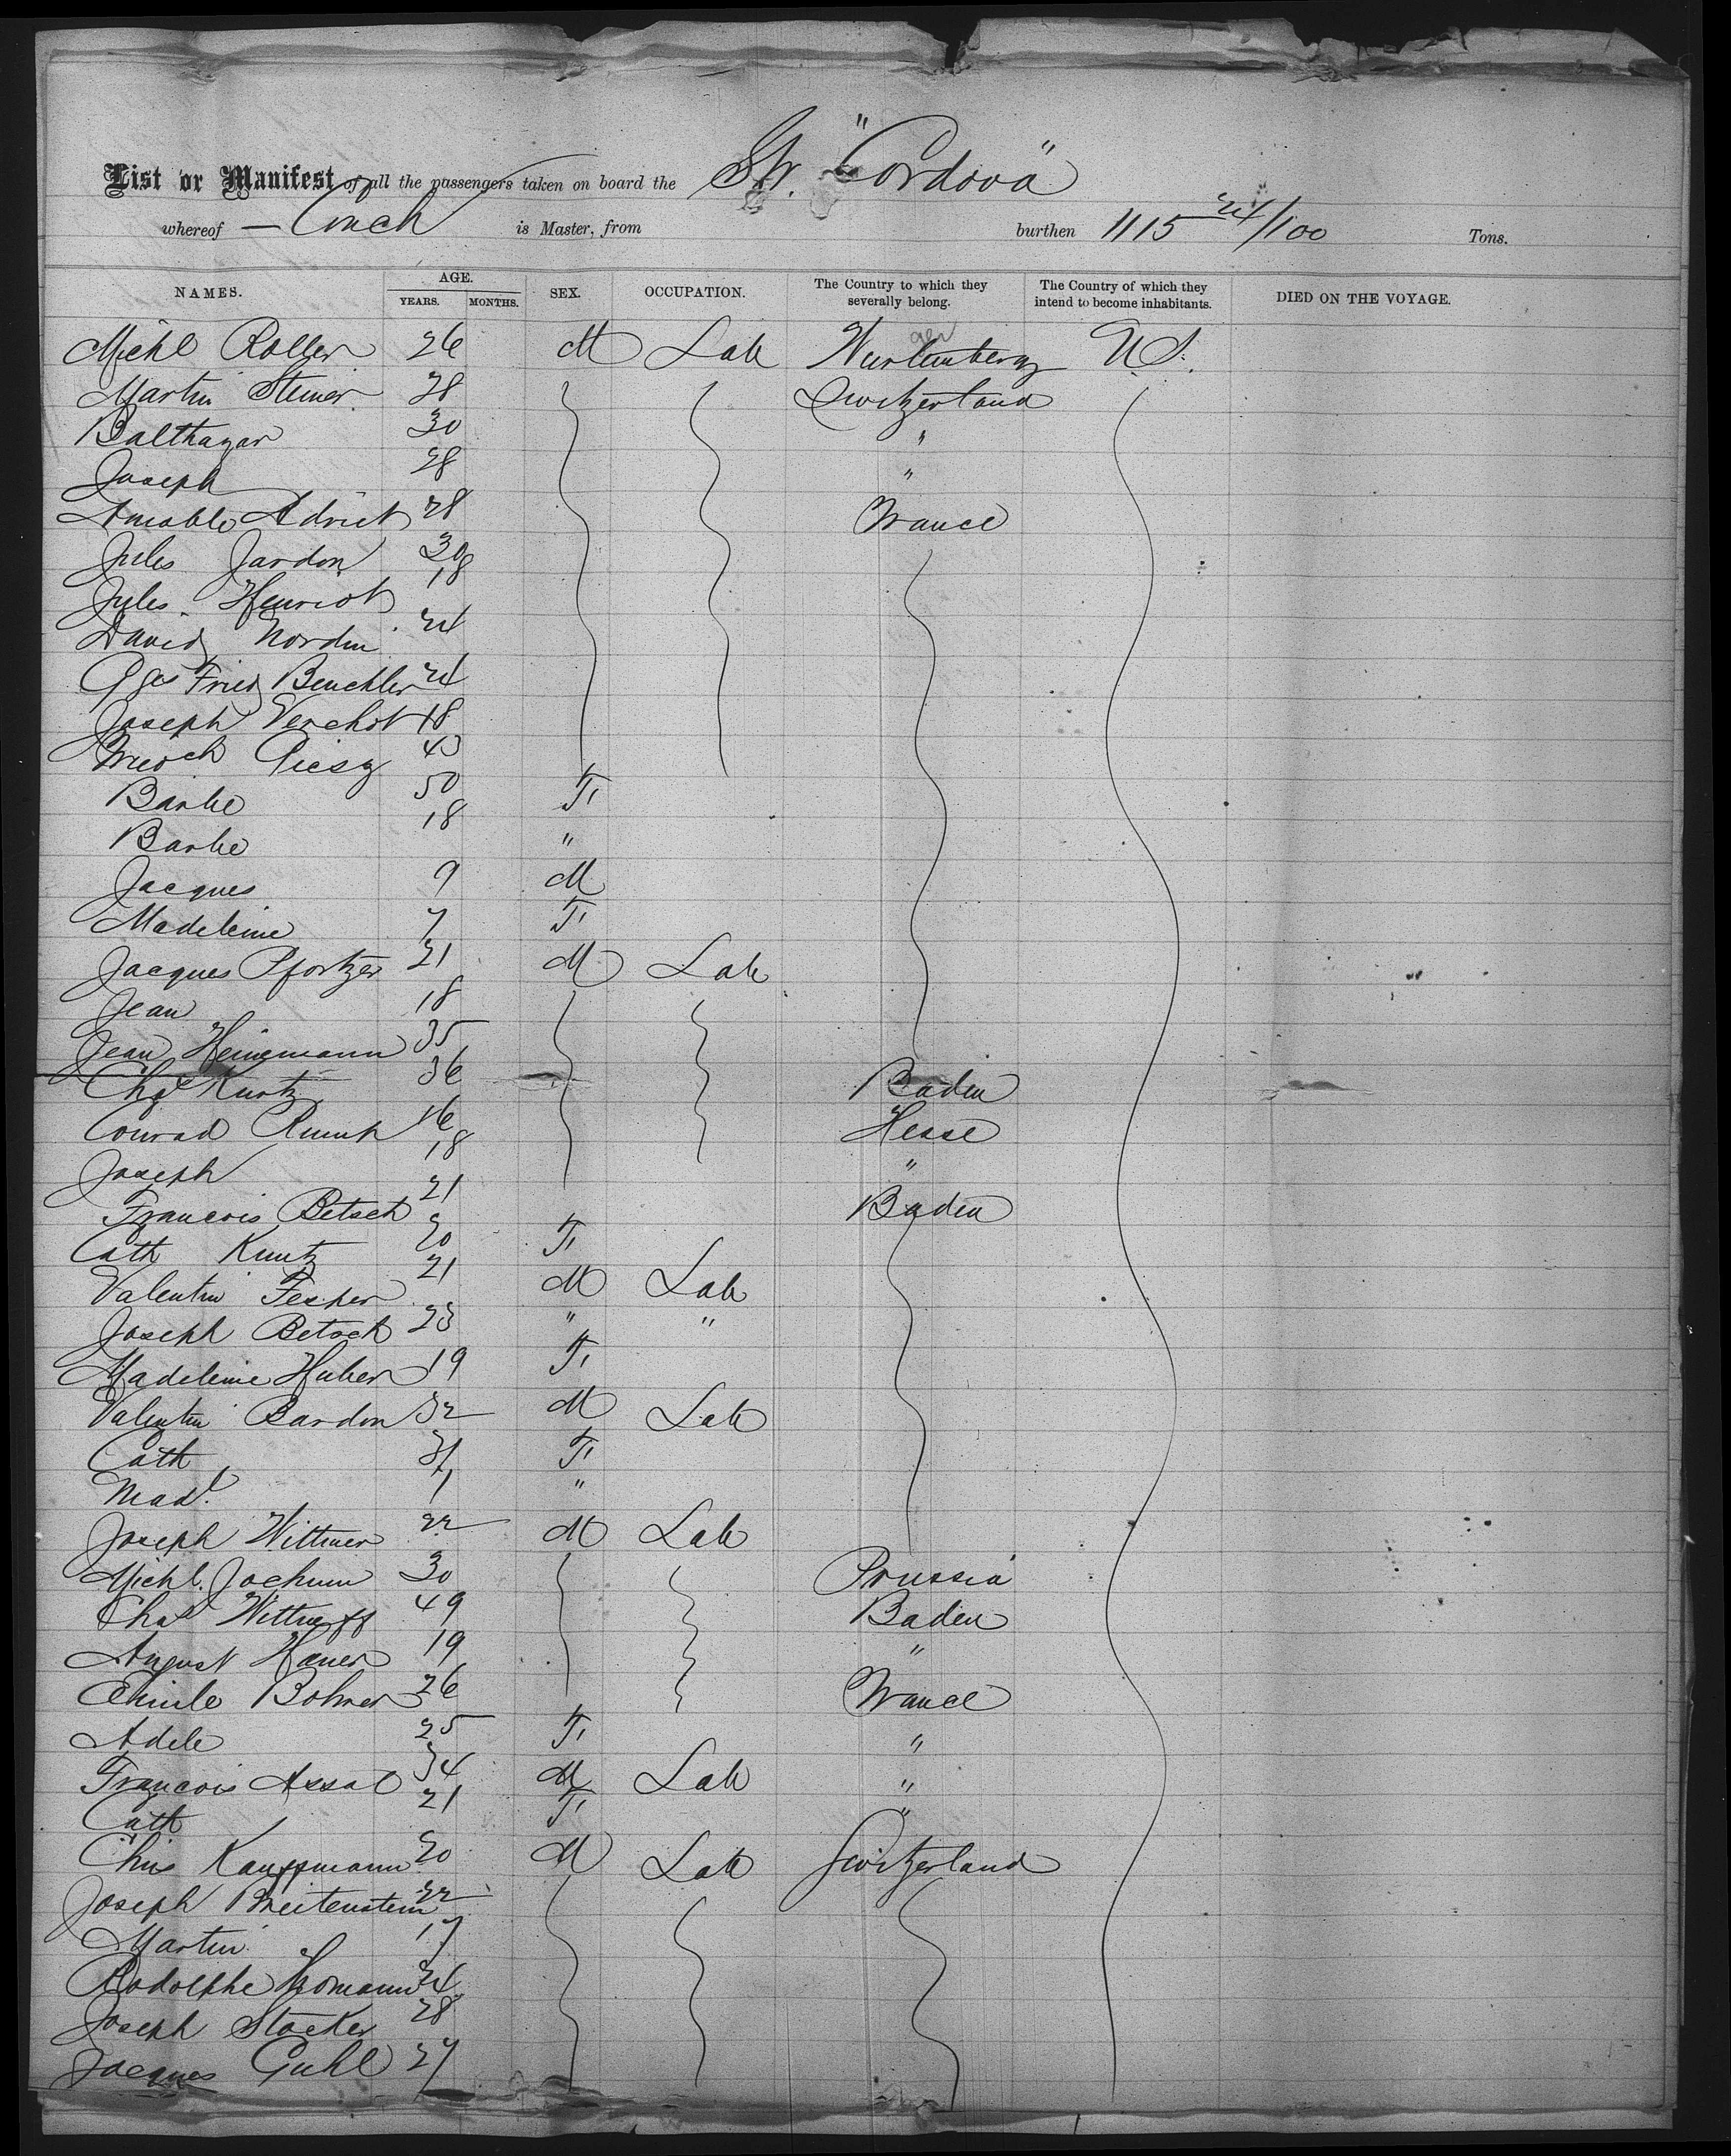 List or Manifest of all the passengers taken on board the Str. "Cordova"
whereof — Couch is Master, from burthen 1115 24/100 Tons.
NAMES. AGE. YEARS. MONTHS. SEX. OCCUPATION. The Country to which they severally belong. The Country of which they intend to become inhabitants. DIED ON THE VOYAGE.
Michl Roller 26 M Lab Wurtemberg U S.
Martin Steiner 28 Switzerland
Balthazar 30 "
Joseph 28 "
Amable Adriet 28 France
Jules Jardon 30
Jules Henriot 18
David Nordin 24
Fried Beuchler 24
Joseph Verchot 18
43
Barbe 50 F
Barbe 18 "
Jacques 9 M
Madeleine 7 F
Jacques Pfortzer 21 M Lab
Jean 18
Jean Heinemann 35
Chas Kurtz 36 Baden
Conrad 16 Hesse
Joseph 18 "
Francois Betsch 21 Baden
Cath Kuntz 20 F
Valentin Fecher 21 M Lab
Joseph Betsch 23 " "
Madeleine Huber 19 F
Valentin Bardon 32 M Lab
Cath F
Madl. 1 "
Joseph Wittmer 22 M Lab
Michl. Jochum 30 Prussia
Chas 49 Baden
August Hauer 19 "
Emile Bohrer 26 France
Adele 25 F "
Francois Assal 34 M Lab "
Cath 21 F "
Chris Kauffmann 20 M Lab Switzerland
Joseph Breitenstein 22
Martin 17
Rodolphe 24
Joseph Stocker 28
Jacques Guhl 27